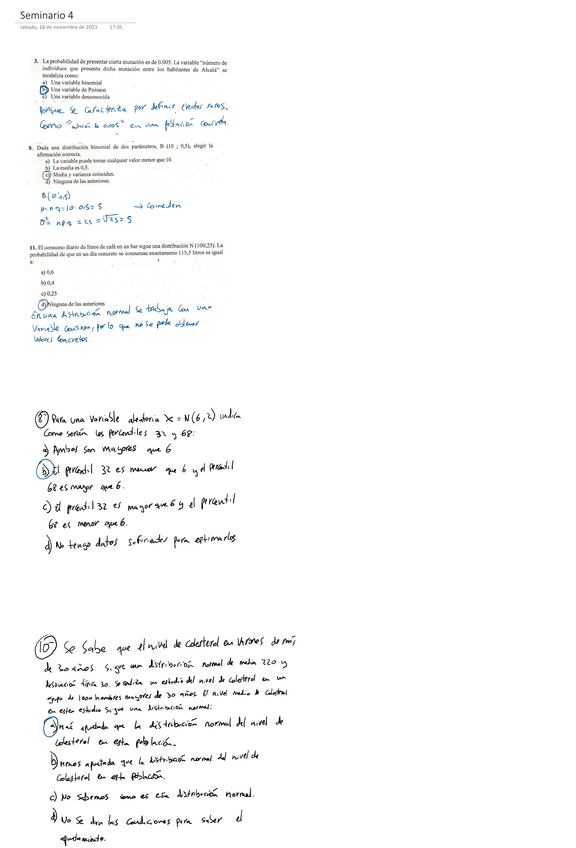 Seminario 4
sábado, 18 de noviembre de 2023 17:05
3. La probabilidad de presentar cierta mutación es de 0.005. La variable "número de
individuos que presenta dicha mutación entre los habitantes de Alcalá" se
modeliza como:
a) Una variable binomial
b) Una variable de Poisson
c) Una variable desconocida
Porque se caracteriza por definir efectos raros,
como en una población concreta.
8. Dada una distribución binomial de dos parámetros, B (10 ; 0,5), elegir la
afirmación correcta.
a) La variable puede tomar cualquier valor menor que 10.
b) La media es 0,5.
c) Media y varianza coinciden.
d) Ninguna de las anteriores.
B(10;0,5)
→ Coinciden
11. El consumo diario de litros de café en un bar sigue una distribución N (100;25). La
probabilidad de que en un día concreto se consuman exactamente 115,5 litros es igual
a:
a) 0,6
b) 0,4
c) 0,25
d) Ninguna de las anteriores
En una distribución normal se trabaja con una
variable continua, por lo que no se puede obtener
valores concretos.
8- Para una variable aleatoria X = N(6,2) indica
como serán los percentiles 32 y 68:
a) Ambos son mayores que 6
b) El percentil 32 es menor que 6 y el percentil
68 es mayor que 6.
c) El percentil 32 es mayor que 6 y el percentil
68 es menor que 6.
d) No tengo datos suficientes para estimarlos
10- Se sabe que el nivel de colesterol en varones de más
de 30 años sigue una distribución normal de media 220 y
desviación típica 30. Se realiza un estudio del nivel de colesterol en un
grupo de 1000 hombres mayores de 30 años. El nivel medio de colesterol
en este estudio sigue una distribución normal:
a) Más apuntada que la distribución normal del nivel de
colesterol en esta población.
b) Menos apuntada que la distribución normal del nivel de
colesterol en esta población.
c) No sabemos como es esa distribución normal.
d) No se dan las condiciones para saber el
apuntamiento.